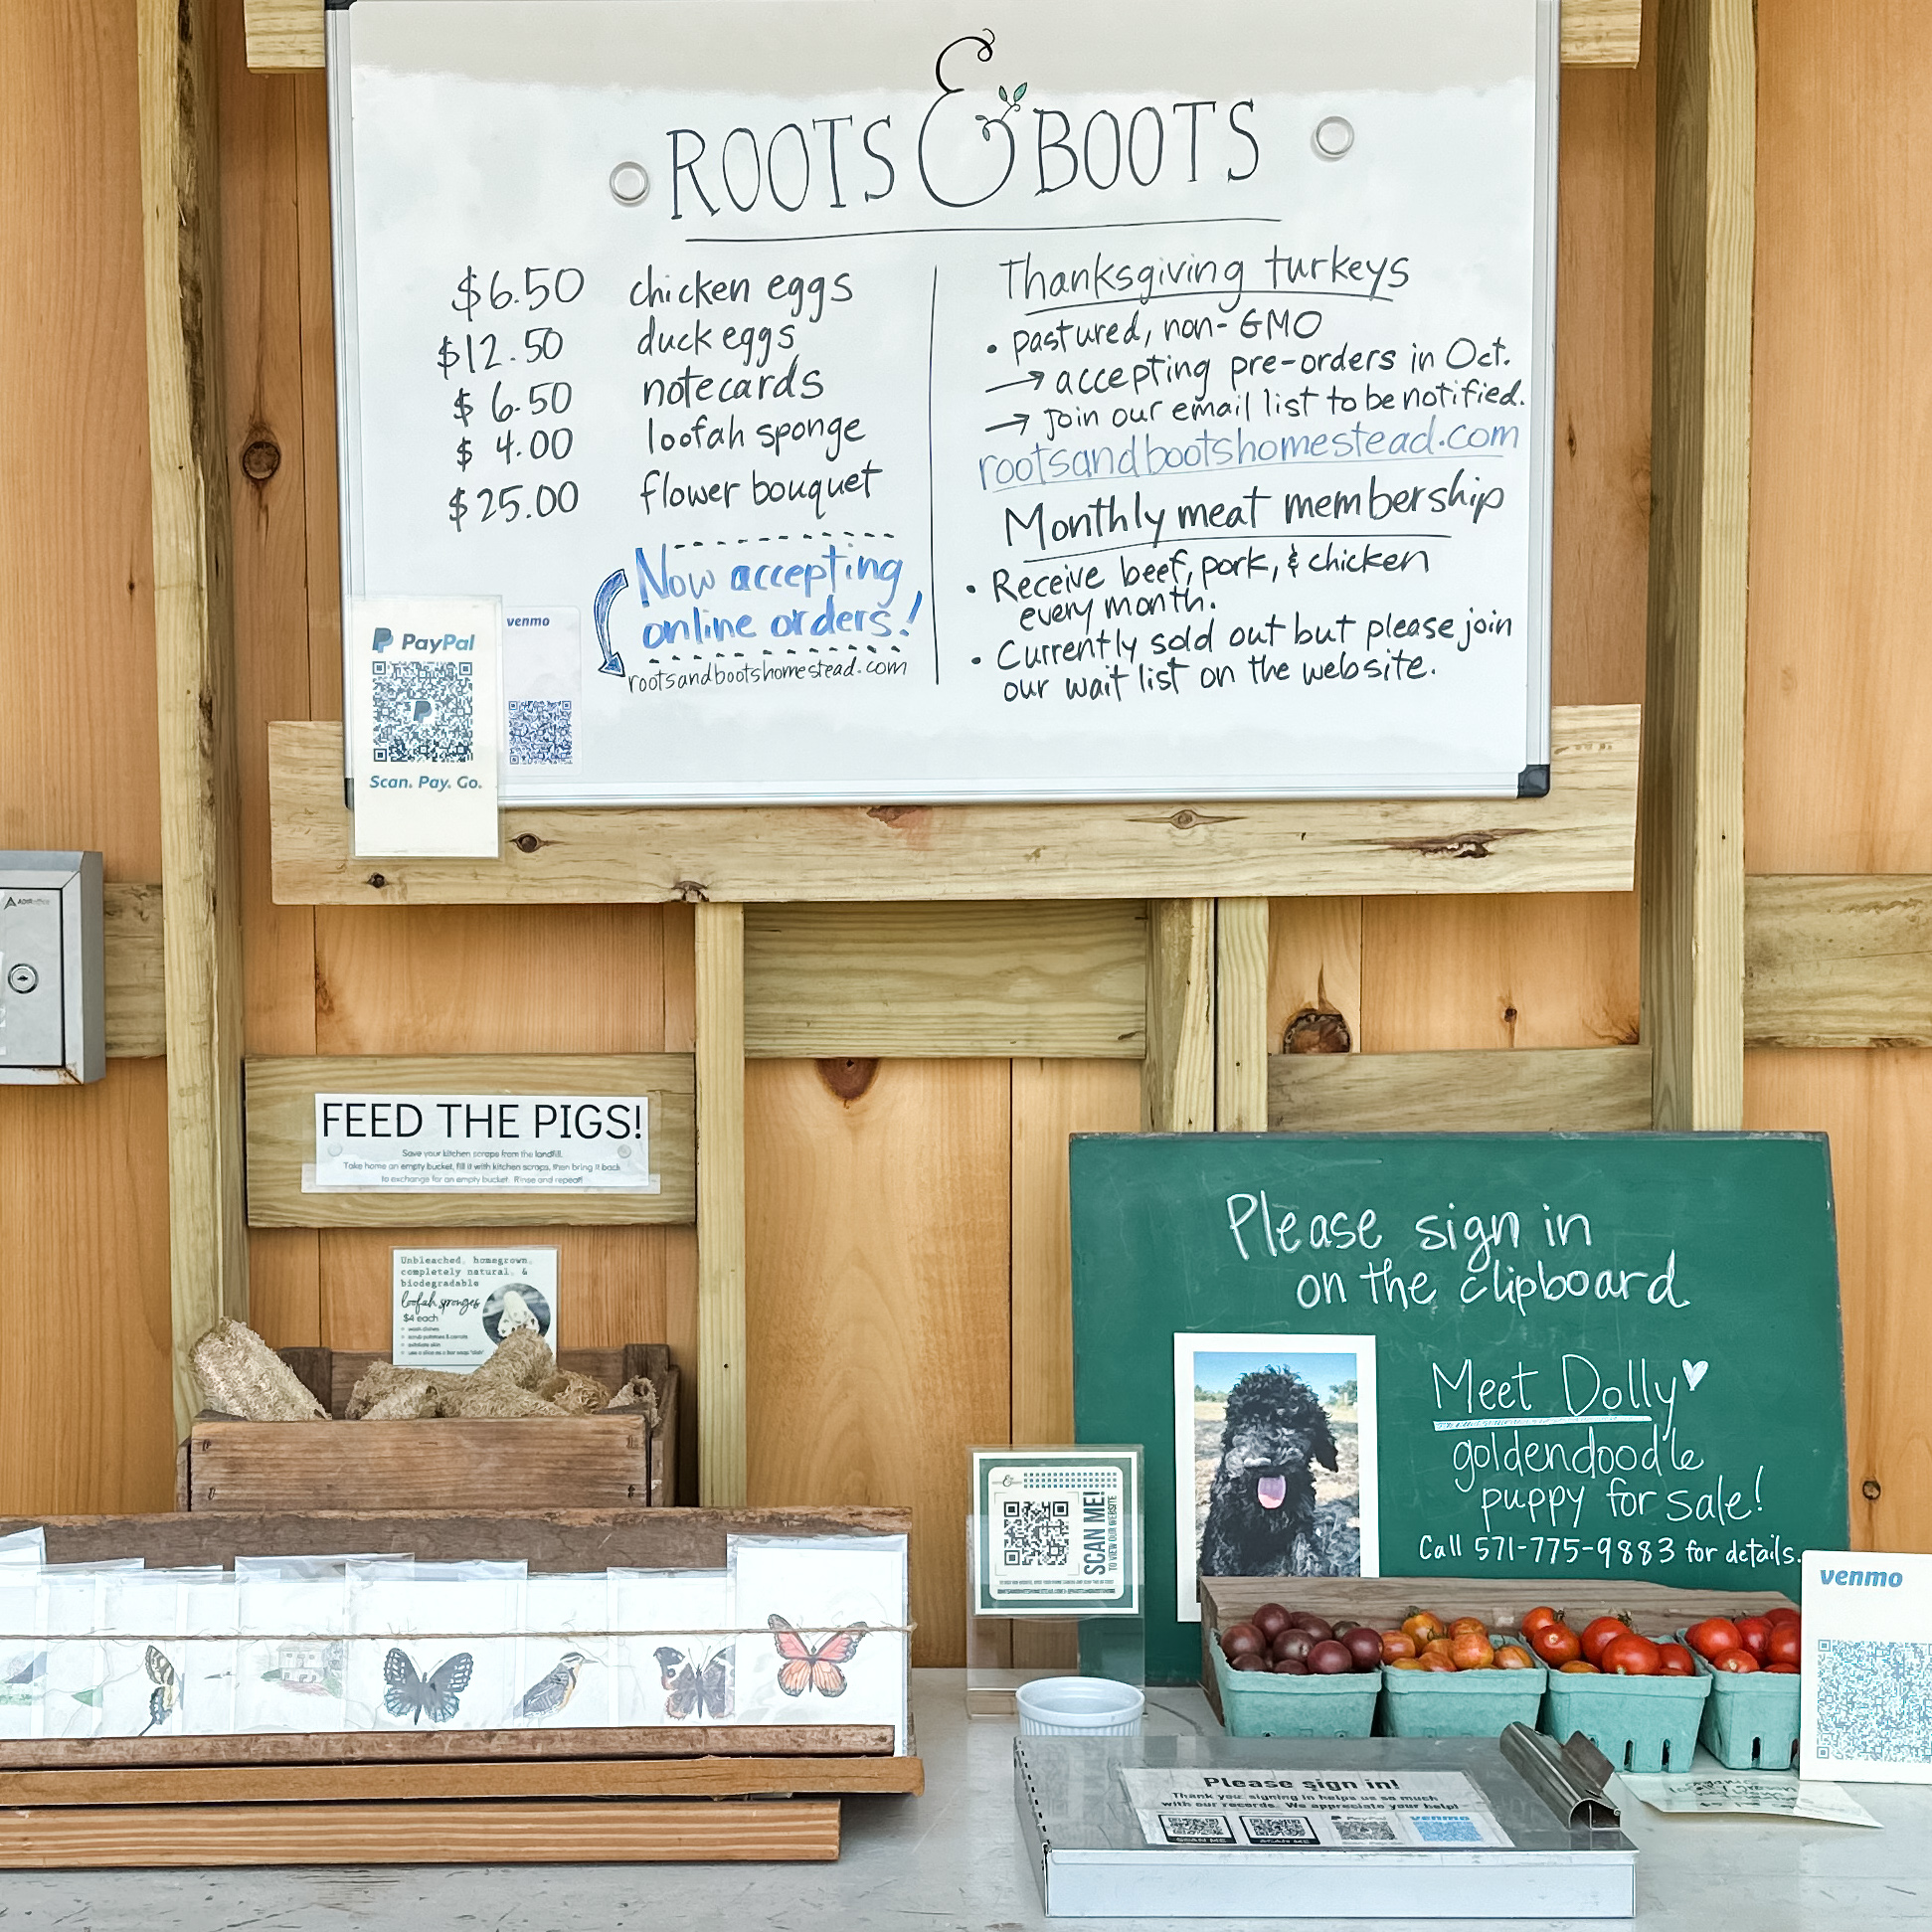 ROOTS & BOOTS
$6.50 chicken eggs
$12.50 duck eggs
$ 6.50 notecards
$ 4.00 loofah sponge
$25.00 flower bouquet
Now accepting
online orders!
rootsandbootshomestead.com
Thanksgiving turkeys
• pastured, non-GMO
→ accepting pre-orders in Oct.
→ Join our email list to be notified.
rootsandbootshomestead.com
Monthly meat membership
• Receive beef, pork, & chicken
every month.
• Currently sold out but please join
our wait list on the website.
PayPal
Scan. Pay. Go.
venmo
FEED THE PIGS!
Save your kitchen scraps from the landfill.
Take home an empty bucket, fill it with kitchen scraps, then bring it back
to exchange for an empty bucket. Rinse and repeat!
Unbleached, homegrown,
completely natural, &
biodegradable
loofah sponges
$4 each
wash dishes
scrub potatoes & carrots
exfoliate skin
Please sign in
on the clipboard
Meet Dolly
goldendoodle
puppy for sale!
Call 571-775-9883 for details.
SCAN ME!
TO VIEW OUR WEBSITE
venmo
Please sign in!
Thank you, signing in helps us so much
with our records. We appreciate your help!
SCAN ME
SCAN ME
PayPal
venmo